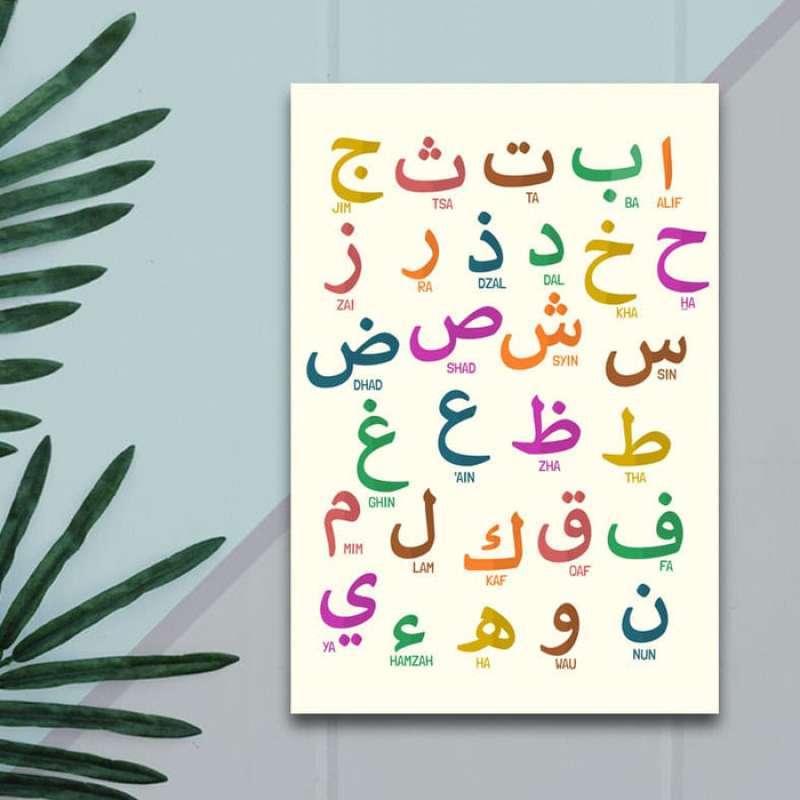 ا ب ت ث ج
ALIF BA TA TSA JIM
ح خ د ذ ر ز
H̱A KHA DAL DZAL RA ZAI
س ش ص ض
SIN SYIN SHAD DHAD
ط ظ ع غ
THA ZHA 'AIN GHIN
ف ق ك ل م
FA QAF KAF LAM MIM
ن و ه ء ي
NUN WAU HA HAMZAH YA